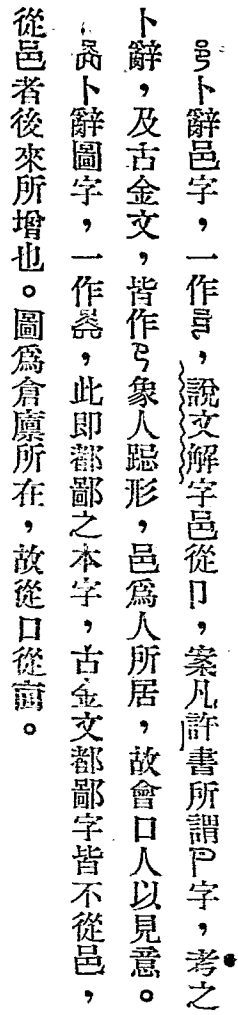 卜辭邑字，一作，說文解字邑從卩，案凡許書所謂卩字，考之
卜辭，及古金文，皆作象人跽形，邑爲人所居，故會囗人以見意。
卜辭啚字，一作，此即都鄙之本字，古金文都鄙字皆不從邑，
從邑者後來所增也。啚爲倉廩所在，故從囗從㐭。